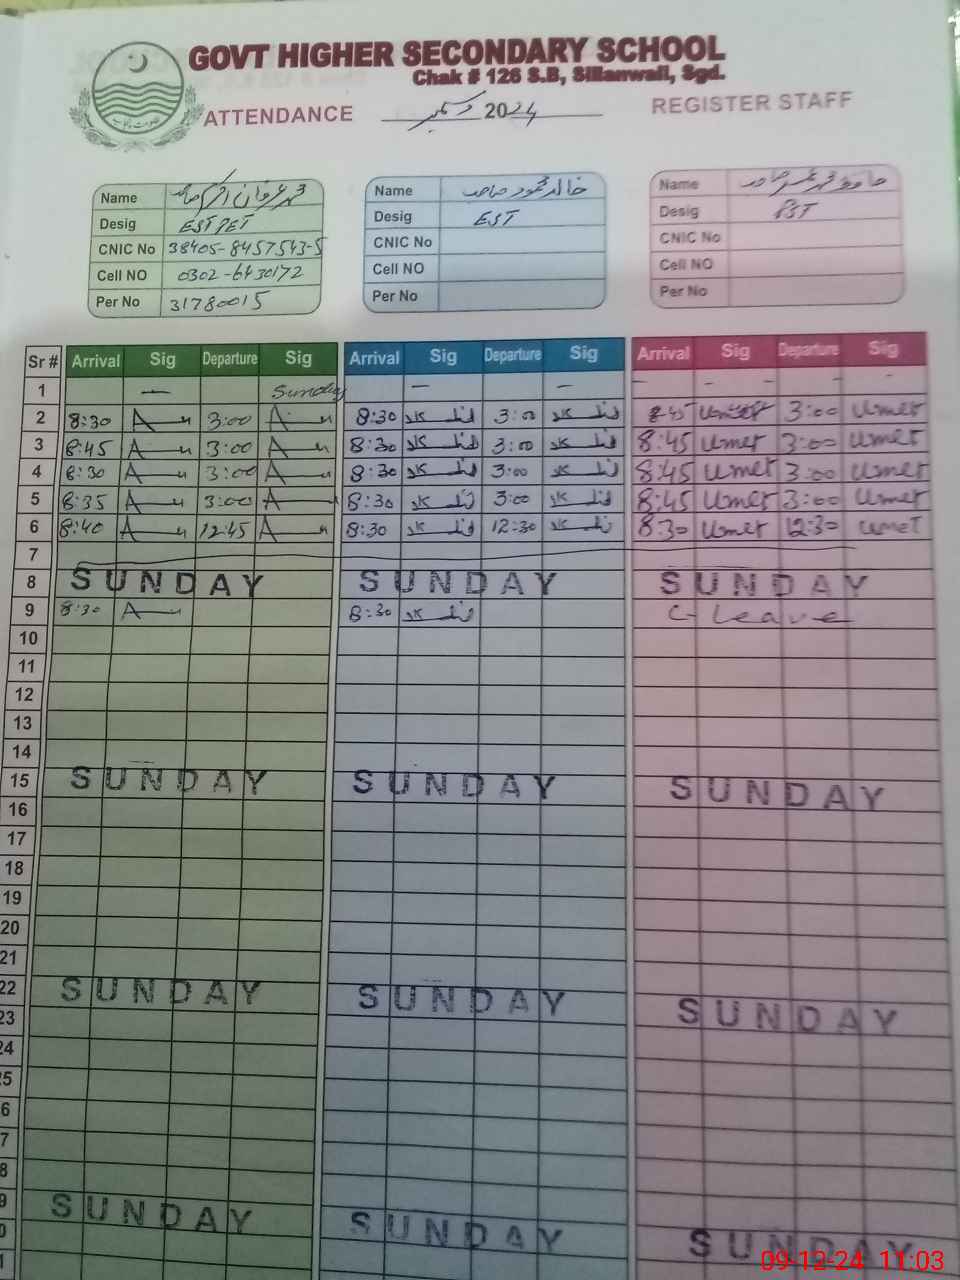 GOVT HIGHER SECONDARY SCHOOL
Chak # 126 S.B, Sillanwali, Sgd.
ATTENDANCE دسمبر 2024 REGISTER STAFF
Name محمد عرفان اکرم صاحب Name خالد محمود صاحب Name حافظ محمد عمر صاحب
Desig EST PET Desig EST Desig PST
CNIC No 38405-8457543-5 CNIC No CNIC No
Cell NO 0302-6430172 Cell NO Cell NO
Per No 31780015 Per No Per No
Sr # Arrival Sig Departure Sig Arrival Sig Departure Sig Arrival Sig Departure Sig
1 — Sunday — — - - - -
2 8:30 3:00 8:30 3:00 8:45 3:00 Umer
3 8:45 3:00 8:30 3:00 8:45 Umer 3:00 Umer
4 8:30 3:00 8:30 3:00 8:45 Umer 3:00 Umer
5 8:35 3:00 8:30 3:00 8:45 Umer 3:00 Umer
6 8:40 12:45 8:30 12:30 8:30 Umer 12:30 Umer
7
8 SUNDAY SUNDAY SUNDAY
9 8:30 8:30 C-Leave
10
11
12
13
14
15 SUNDAY SUNDAY SUNDAY
16
17
18
19
20
21
22 SUNDAY SUNDAY SUNDAY
23
24
25
6
7
8
9 SUNDAY SUNDAY SUNDAY
0
1
09-12-24 11:03